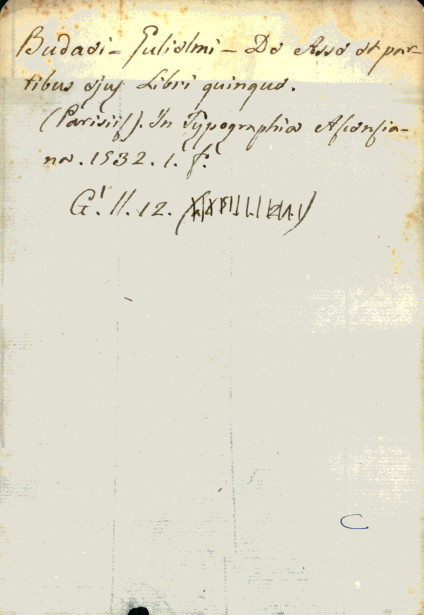 Budaei - Gulielmi - De Asse et par-
tibus ejus Libri quinque.
(Parisiis). In Typographia Ascensia-
na. 1532. 1. f.
G. II. 12.